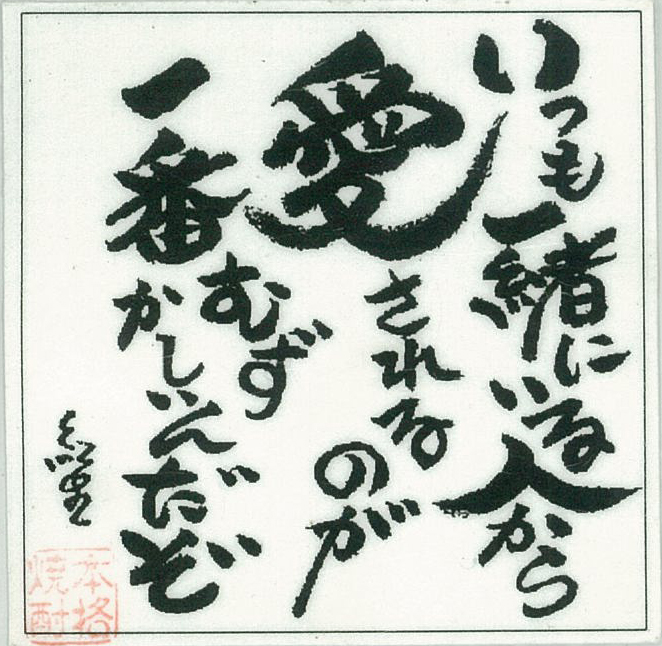 いつも一緒にいる人から
愛されるのが
一番むずかしいんだぞ
本格
焼酎